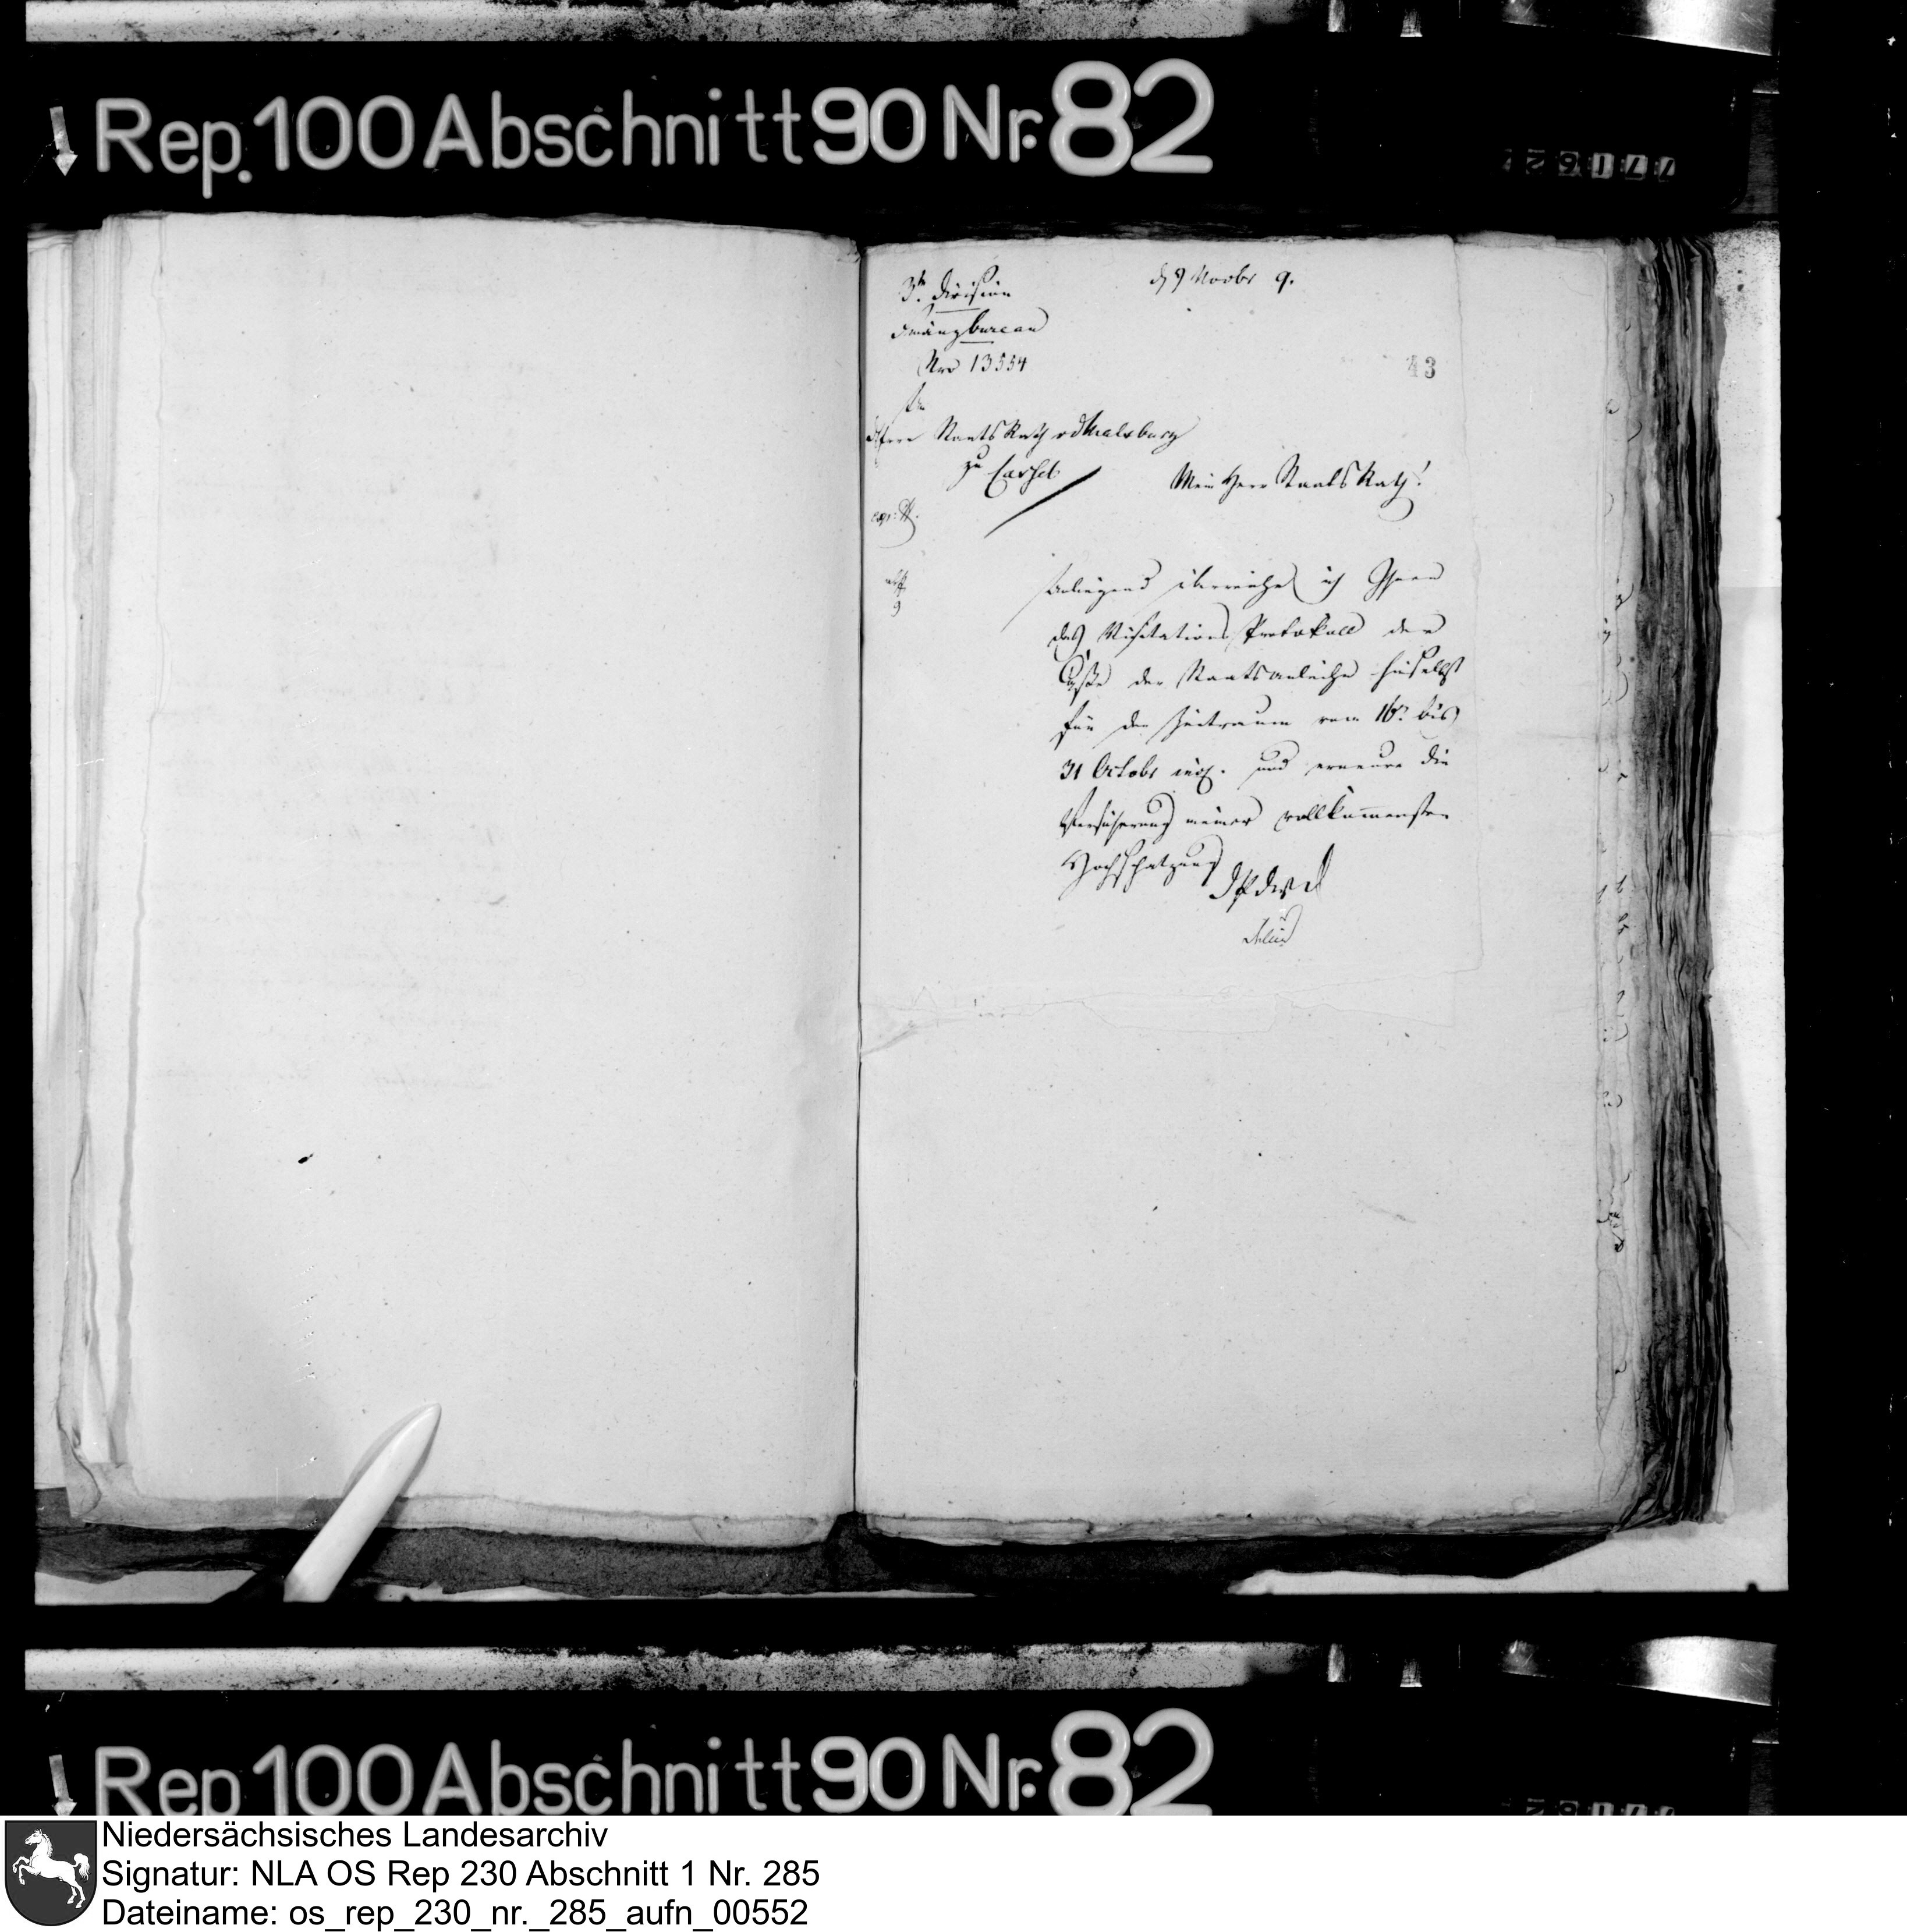 Rep. 100 Abschnitt 90 Nr. 82
77162
3te Division
Finanzbureau
Nro 13554
d 9 Novbr 9.
43
An
Herrn StaatsRath v d Malsburg
zu Cassel
Mein Herr StaatsRath!
Anliegend überreiche ich Ihnen
das Visitations Protokoll der
Casse der Staatsanleihe hieselbst
für den Zeitraum vom 16t. bis
31 Octobr incl. und erneure die
Versicherung meiner vollkommensten
Hochschätzung
Rep 100 Abschnitt 90 Nr. 82
Niedersächsisches Landesarchiv
Signatur: NLA OS Rep 230 Abschnitt 1 Nr. 285
Dateiname: os_rep_230_nr._285_aufn_00552